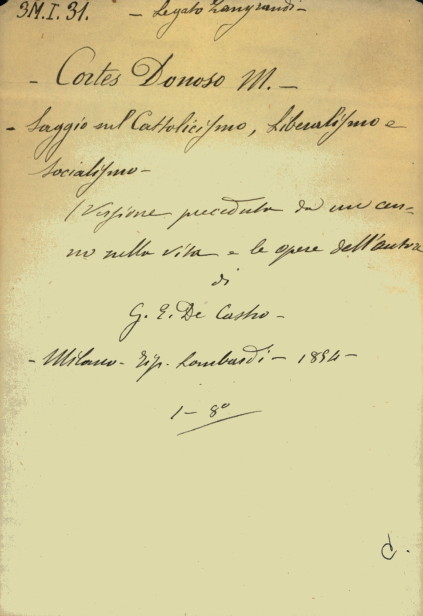 3M.I.31. - Legato Zangrandi -
- Cortes Donoso M. -
- Saggio sul Cattolicismo, Liberalismo e
socialismo -
Versione preceduta da un cen-
no sulla vita e le opere dell'autore
di
G. E. De Castro -
- Milano - Tip. Lombardi - 1854 -
1 - 8°
C.